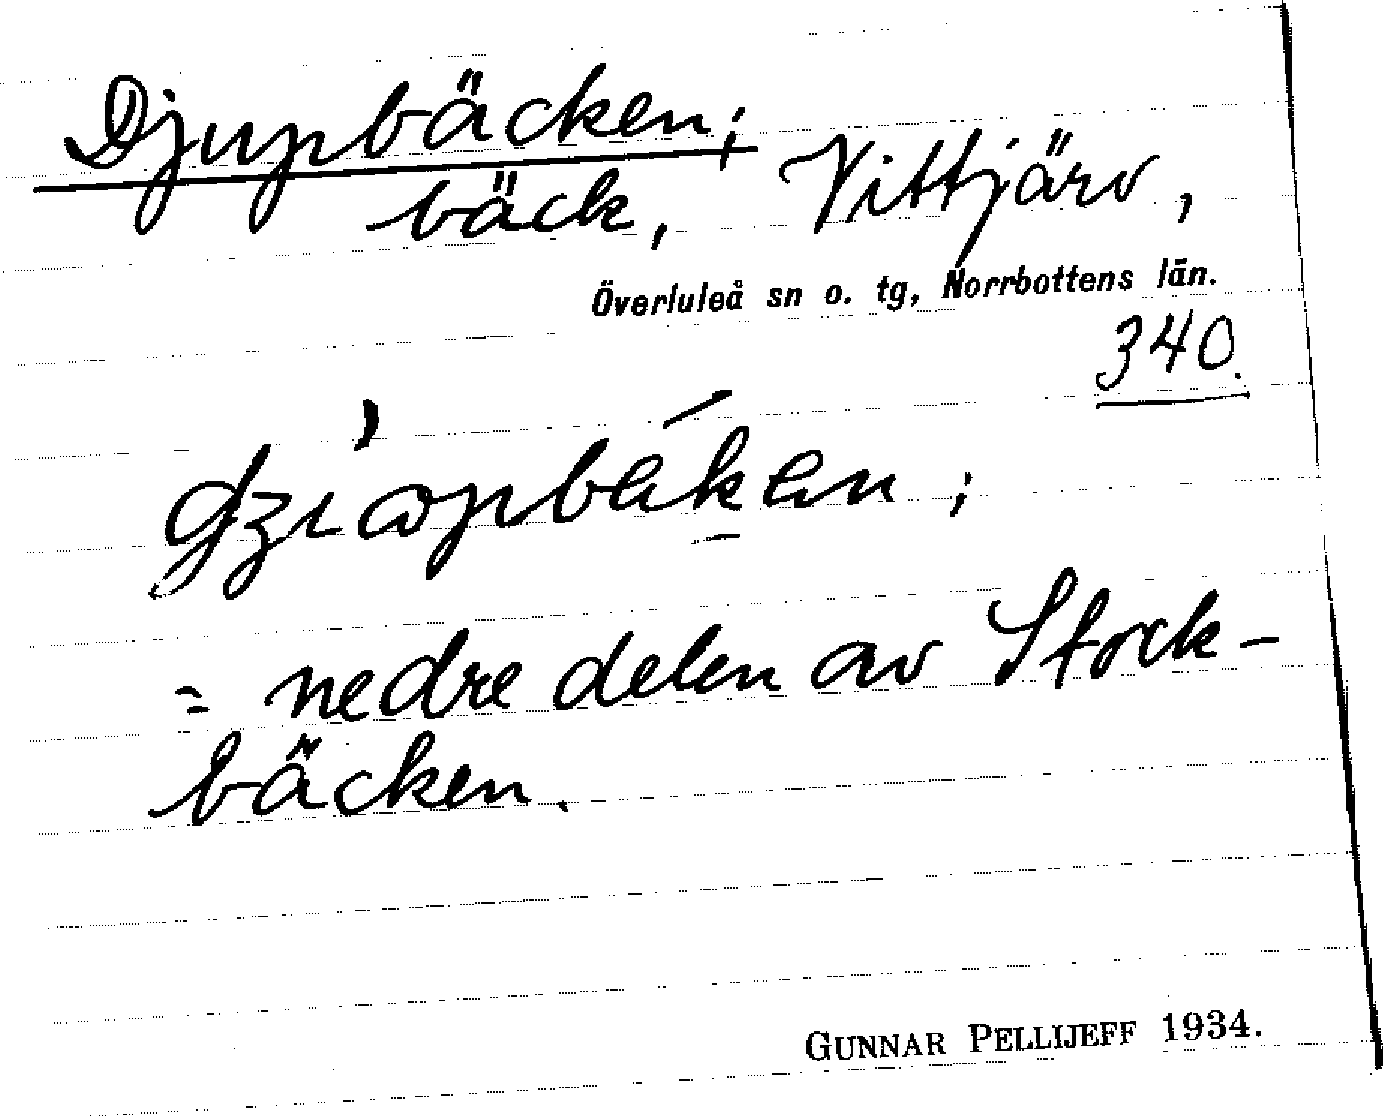 Djupbäcken;
bäck, Vittjärv,
Överluleå sn o. tg, Norrbottens län.
340.
= nedre delen av Stock-
bäcken.
GUNNAR PELLIJEFF 1934.